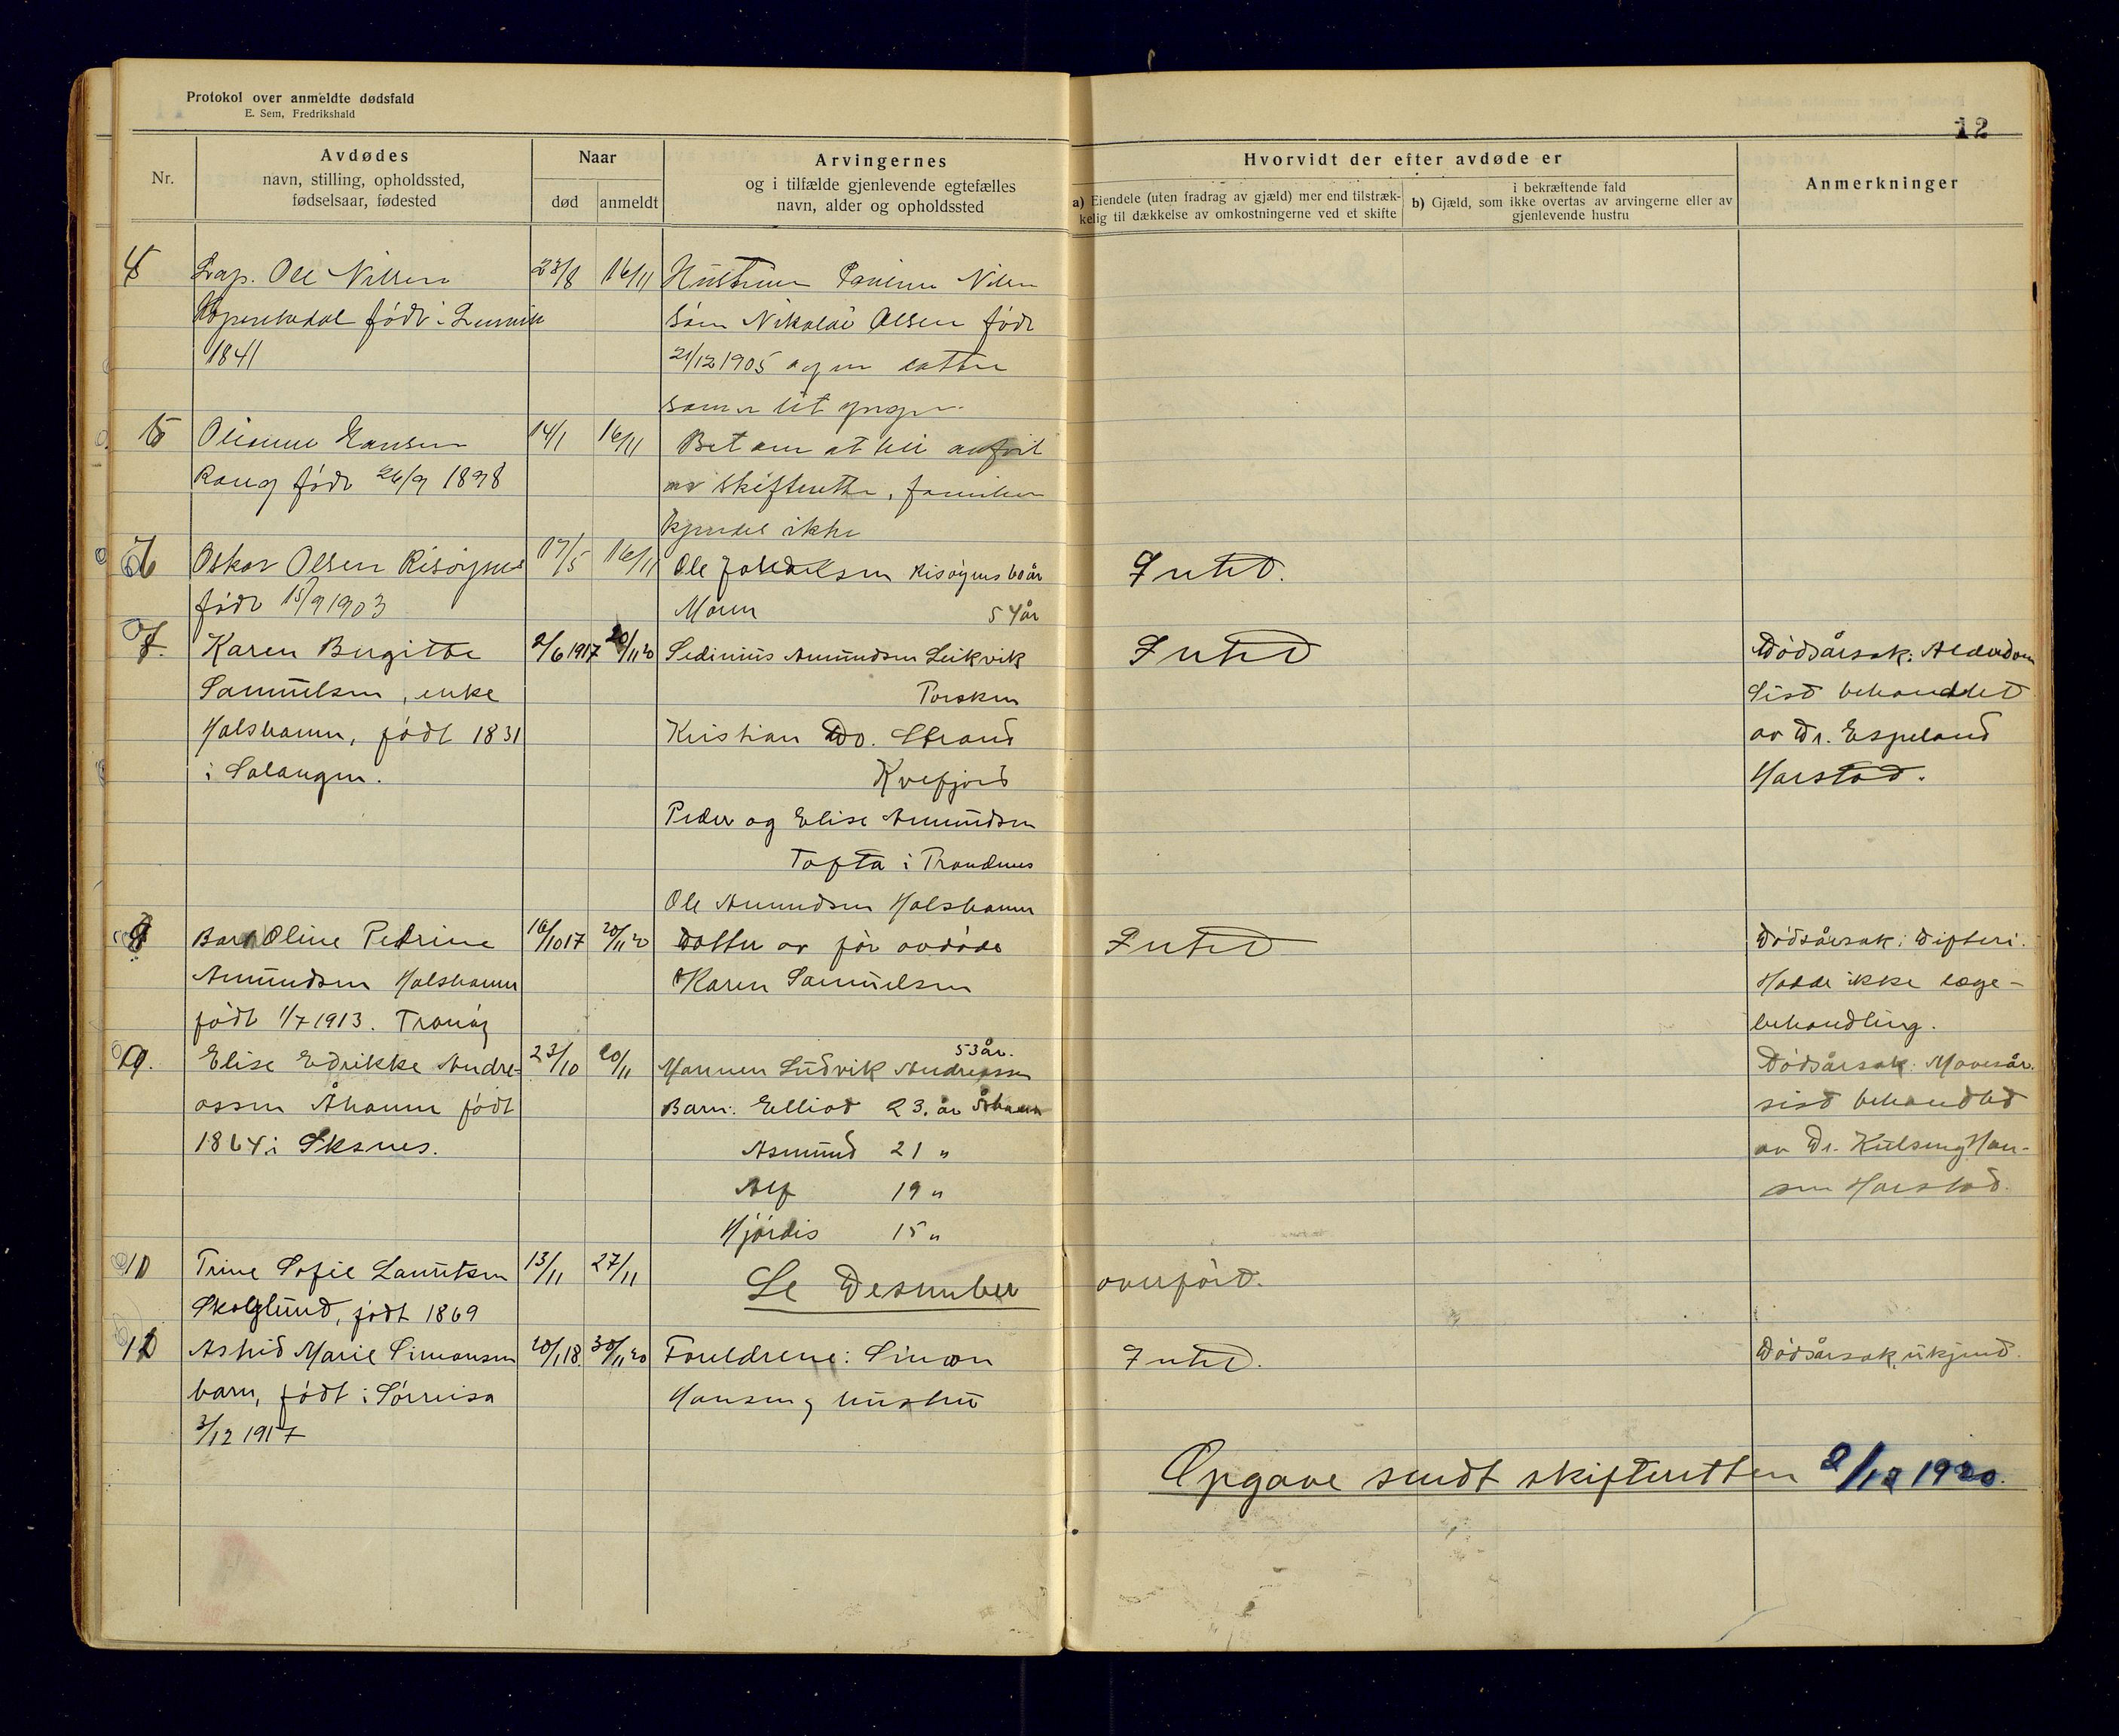 Protokol over anmeldte dødsfald
E. Sem, Fredrikshald
12
Nr.
Avdødes
navn, stilling, opholdssted,
fødselsaar, fødested
Naar
død
anmeldt
Arvingernes
og i tilfælde gjenlevende egtefælles
navn, alder og opholdssted
Hvorvidt der efter avdøde er
a) Eiendele (uten fradrag av gjæld) mer end tilstræk-
kelig til dækkelse av omkostningerne ved et skifte
i bekræftende fald
b) Gjæld, som ikke overtas av arvingerne eller av
gjenlevende hustru
Anmerkninger
Lap. Ole Nilsen 23/8 16/11 Hustruen Nilsen
født i søn Nikolai Olsen født
1841 21/12 1905 og en datter
som er
5 Hansen 14/1 16/11 Bet om at bli
Rang født 26/9 1898 av skifteretten, familien
kjendes ikke
6 Oskar Olsen Risøynes 17/5 16/11 Ole Risøynes 60 år Intet.
født 15/9 1903 Maren 54 år
7. Karen Bergitte 2/6 1917 20/11 20 Sedinius Amundsen Leikvik Intet Dødsårsak: Alderdom
Samuelsen, enke Torsken Sist behandlet
Halshamn, født 1831 Kristian Do. Strand av Dr. Espeland
i Salangen. Kvefjord Harstad.
Peder og Elise Amundsen
Tofta i Trondenes
Ole Amundsen Halshamn
8 Barn Oline Petrine 16/10 17 20/11 20 Datter av før avdøde Intet Dødsårsak: Difteri.
Amundsen Halshamn Karen Samuelsen Hadde ikke læge-
født 1/7 1913. Tranøy behandling.
53 år.
9. Elise Edrikke Andre- 23/10 20/11 Mannen Ludvik Andreassen Dødsårsak: Mavesår.
assen Åhamn født Barn: Elliod 23. år Åhamn sist behandlet
1864 i Øksnes. Asmund 21 " av Dr. Han-
Alf 19 " sen Harstad.
Hjørdis 15 "
10 Trine Sofie Lauritsen 13/11 27/11 Se Desember overført.
Skoglund, født 1869
11 Astrid Marie Simonsen 20/1 18. 30/11 20 Foreldrene: Simon Intet. Dødsårsak ukjend.
barn, født i Sørreisa Hansen og hustru
3/12 1917
Opgave sendt skifteretten 2/12 1920.